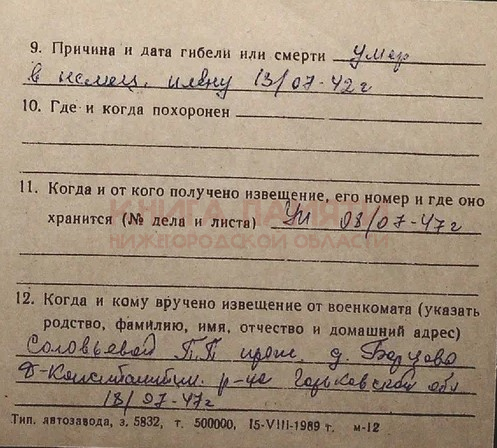 9. Причина и дата гибели или смерти умер
в немец. плену 13/07-42г
10. Где и когда похоронен
11. Когда и от кого получено извещение, его номер и где оно
хранится (№ дела и листа) 08/07-47г
КНИГА ПАМЯТИ
НИЖЕГОРОДСКОЙ ОБЛАСТИ
12. Когда и кому вручено извещение от военкомата (указать
родство, фамиляю, имя, отчество и домашний адрес)
Соловьевой П.П прож. д. Борцово
Д-Константин. р-на Горьковской обл
18/07-47г
Тип. автозавода, з. 5832, т. 500000, 15-VIII-1989 т. м-12